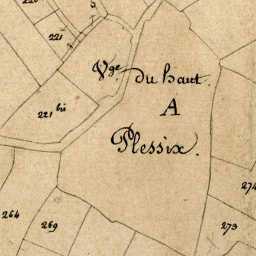 221
Vge du haut.
A
221 bis
Plessix.
274
264
269
273